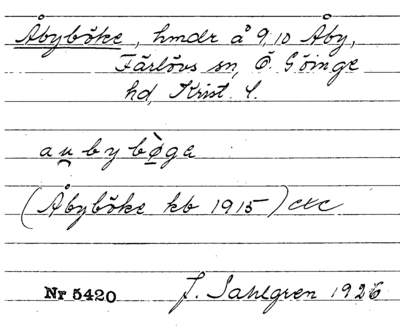 Åbyböke, hmdr å 9, 10 Åby,
Färlövs sn, Ö. Göinge
hd, Krist. l.
au̯byb̀øga
(Åbyböke kb 1915) etc
Nr 5420 J. Sahlgren 1926